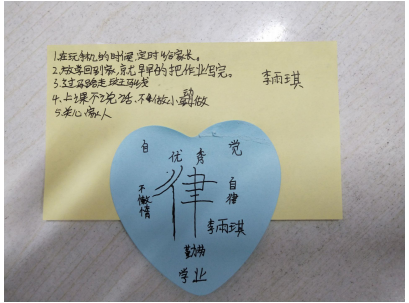 1.在玩手机的时候,定时给家长。
2.放学回到家,就早早的把作业写完。
3.过马路走斑马线
4.上课不说话,不做小动做
5.关心家人
李雨琪
自 优秀 觉
律
不懒惰
自律
李雨琪
勤劳
学业